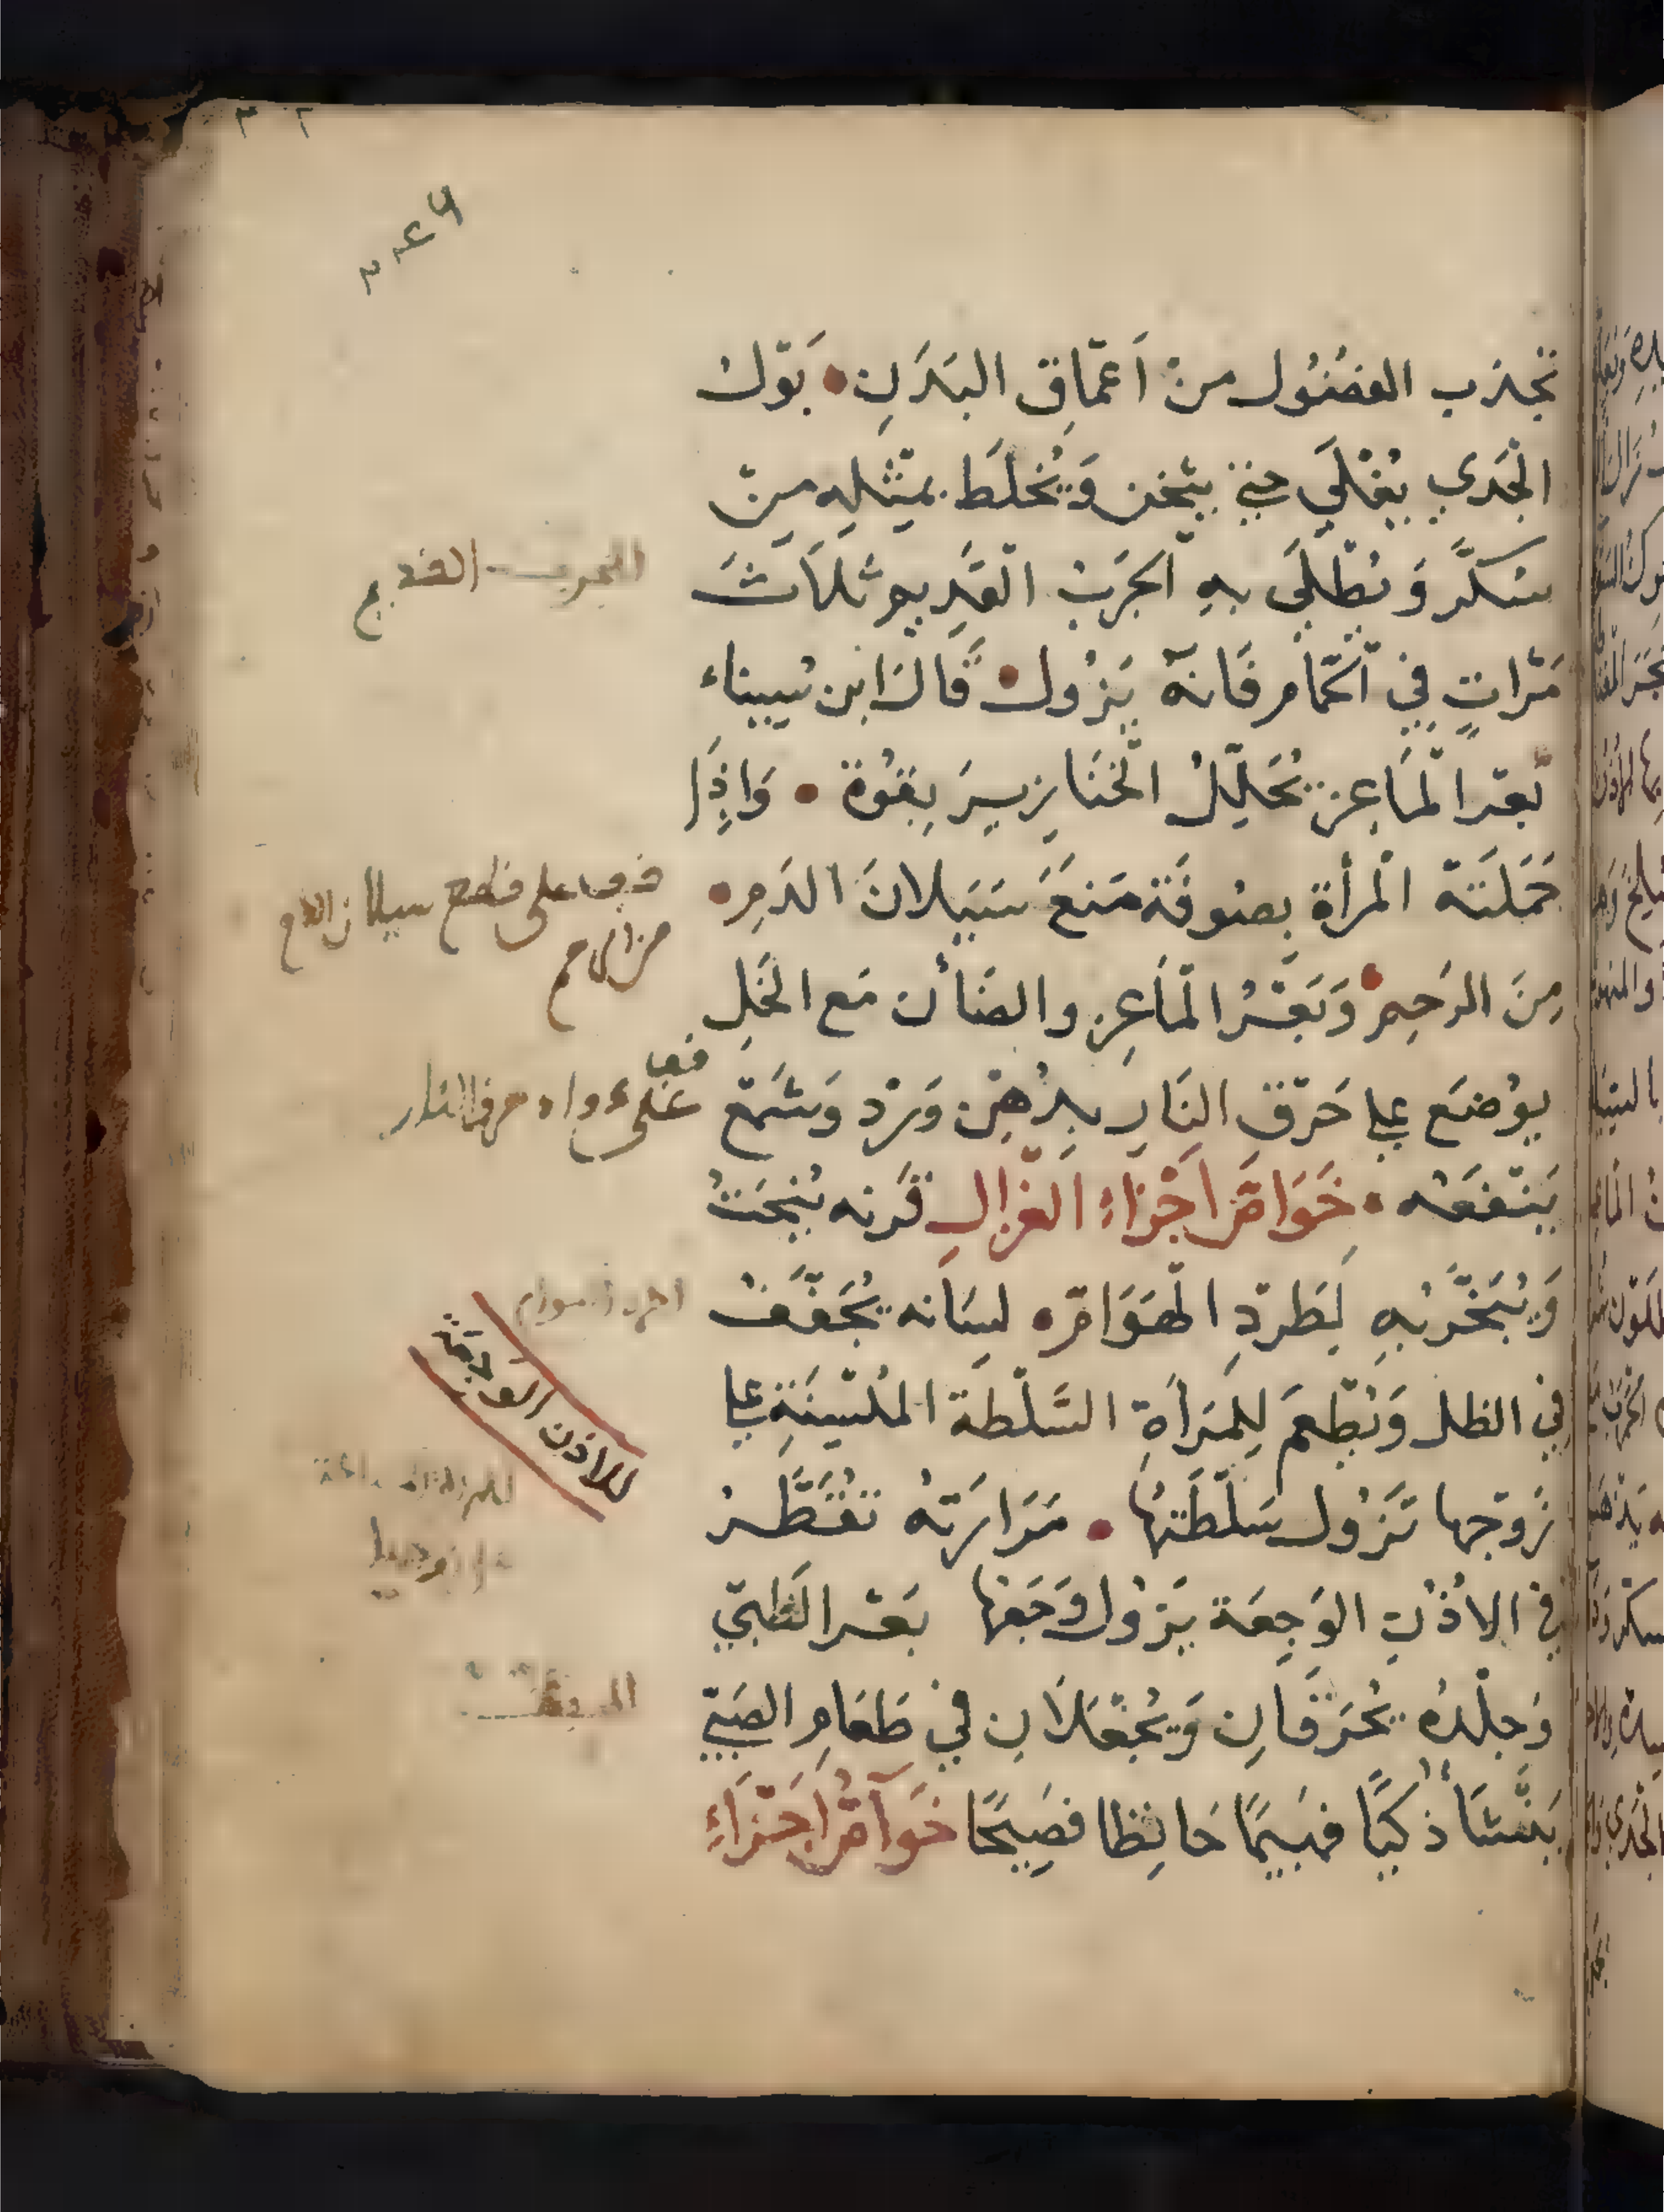 تجذب الفضُول من اَعمَاقِ البَدَنِ • بَوْل
الجَدي يُغْلَي حتي يثخن وَيُخلَط بمثلِه من
سكرٍ وَيُطلَي بهِ الجرَب القَدِيم ثلَاثَ
مَرَاتٍ في الحَمام فَانهُ يَزُول • قَالَ ابن سيناء
بَعر المَاعِز يُحَلِلُ الخنَازِيرَ بِقُوة • وَاذَا
حَمَلَته المرأة بصُوفَة مَنَعَ سَيَلانَ الدَمِ •
مِنَ الرَحِم • وَبَعْرُ المَاعِز والضَأن مَع الخَلِ
يوُضَع علي حَرقِ النَارِ بدُهنِ وَرْد وَشَمْع
يَنفَعَه • خَوَاصّ اَجْزَاءِ الغزالِ قَرنه يُنحَتُ
وَيُبَخَّر بهِ لِطَردِ الهَوَامّ • لسَانه يُجَفَّفُ
في الظل وَيُطْعَم لِلمَرأةِ السَّلطَة المُلسِنَةِ علي
زَوجها تَزُول سَلطَتهَا • مَرَارَتهُ تقُطَّرُ
في الاذُنِ الوَجِعَة يَزُول وَجَعهَا بَعْر الظَبي
وَجِلْدُه يُحرَقَانِ وَيُجْعَلَانِ في طَعَامِ الصَبيّ
يَنْشَأ ذكيًا فهَيمًا حَافِظا فصِيحًا خَوَاصّ اَجزَاءِ
الجرب القديم
قف على قطع سيلان الدم
من الرحم
قف
على دواء حرق النار
للاذن الوجعة